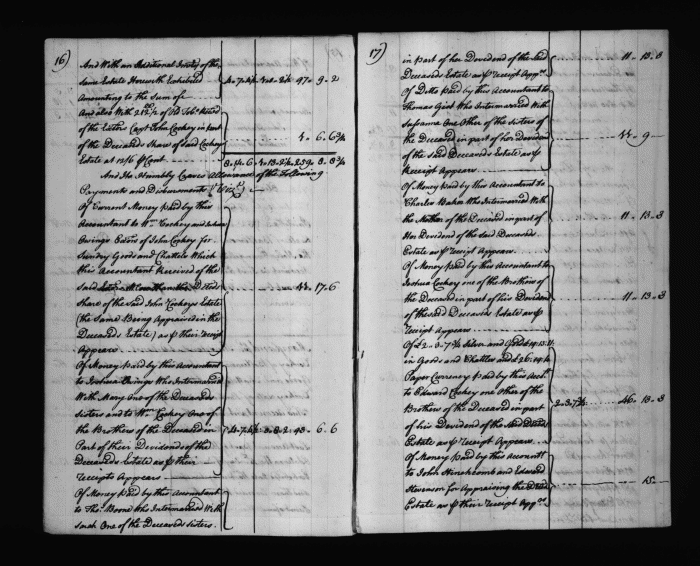 16)
And With an Additional Invty of the
same Estate Herewith Exhibited
Amounting to the Sum of 47 - 9 - 2
And also With 212½ of Tobo
of the Exters Capt John Cockey in part
of the Deceased Share of said Cockey
Estate at 12/6 p Cent. 4 - 6 - 6¾
And He Humbly Craves Allowance of the Following
Payments and Disbursments (Vizt)
Of Current Money Paid by this
Accountant to Wm Cockey and
Owings Exters of John Cockey for
Sundry Goods and Chattels Which
this Accountant Received of the
said
Share of the Said John Cockeys Estate
(the Same Being Appraised in the
Deceaseds Estate) as p their Receipt
Appears 44 - 17 - 6
Of Money paid by this Accountant
to Joshua Owings Who Intermarried
With Mary One of the Deceaseds
Sisters and to Wm Cockey One of
the Brothers of the Deceased in
Part of their Dividends of the
Deceaseds Estate as p their
Receipts Appears
Of Money paid by this Accountant
to Thos Boone Who Intermarried With
such One of the Deceaseds Sisters.
17)
in part of her Dividend of the Said
Deceaseds Estate as p receipt Apprs 11 - 13 - 3
Of Ditto paid by this Accountant to
Thomas Gist Who Intermarried With
Susanna One Other of the Sisters of
the Deceased in part of her Dividend
of the Said Deceaseds Estate as p
Receipt Appears 44 - 9 -
Of Money paid by this Accountant to
Charles Baker Who Intermarried With
the Mother of the Deceased in part of
Her Dividend of the Said Deceaseds
Estate as p receipt Appears 11 - 13 - 3
Of Money paid by this Accountant to
Joshua Cockey one of the Brothers of
the Deceased in part of his Dividend
of the Sd Deceaseds Estate as p
receipt Appears 11 - 13 - 3
Of £2 - 3 - 7¾ Silver and Gold
in Goods and Chattles and £26
Paper Currency paid by this Acct
to Edward Cockey one Other of the
Brothers of the Deceased in part 2 - 3 - 7¾ 46 - 13 - 3
of his Dividend of the said
Estate as p receipt Appears
Of Money paid by this Accountt
to John Hinchcomb and Edward
Stevenson for Appraising the
Estate as p their Receipt Apprs 15 -